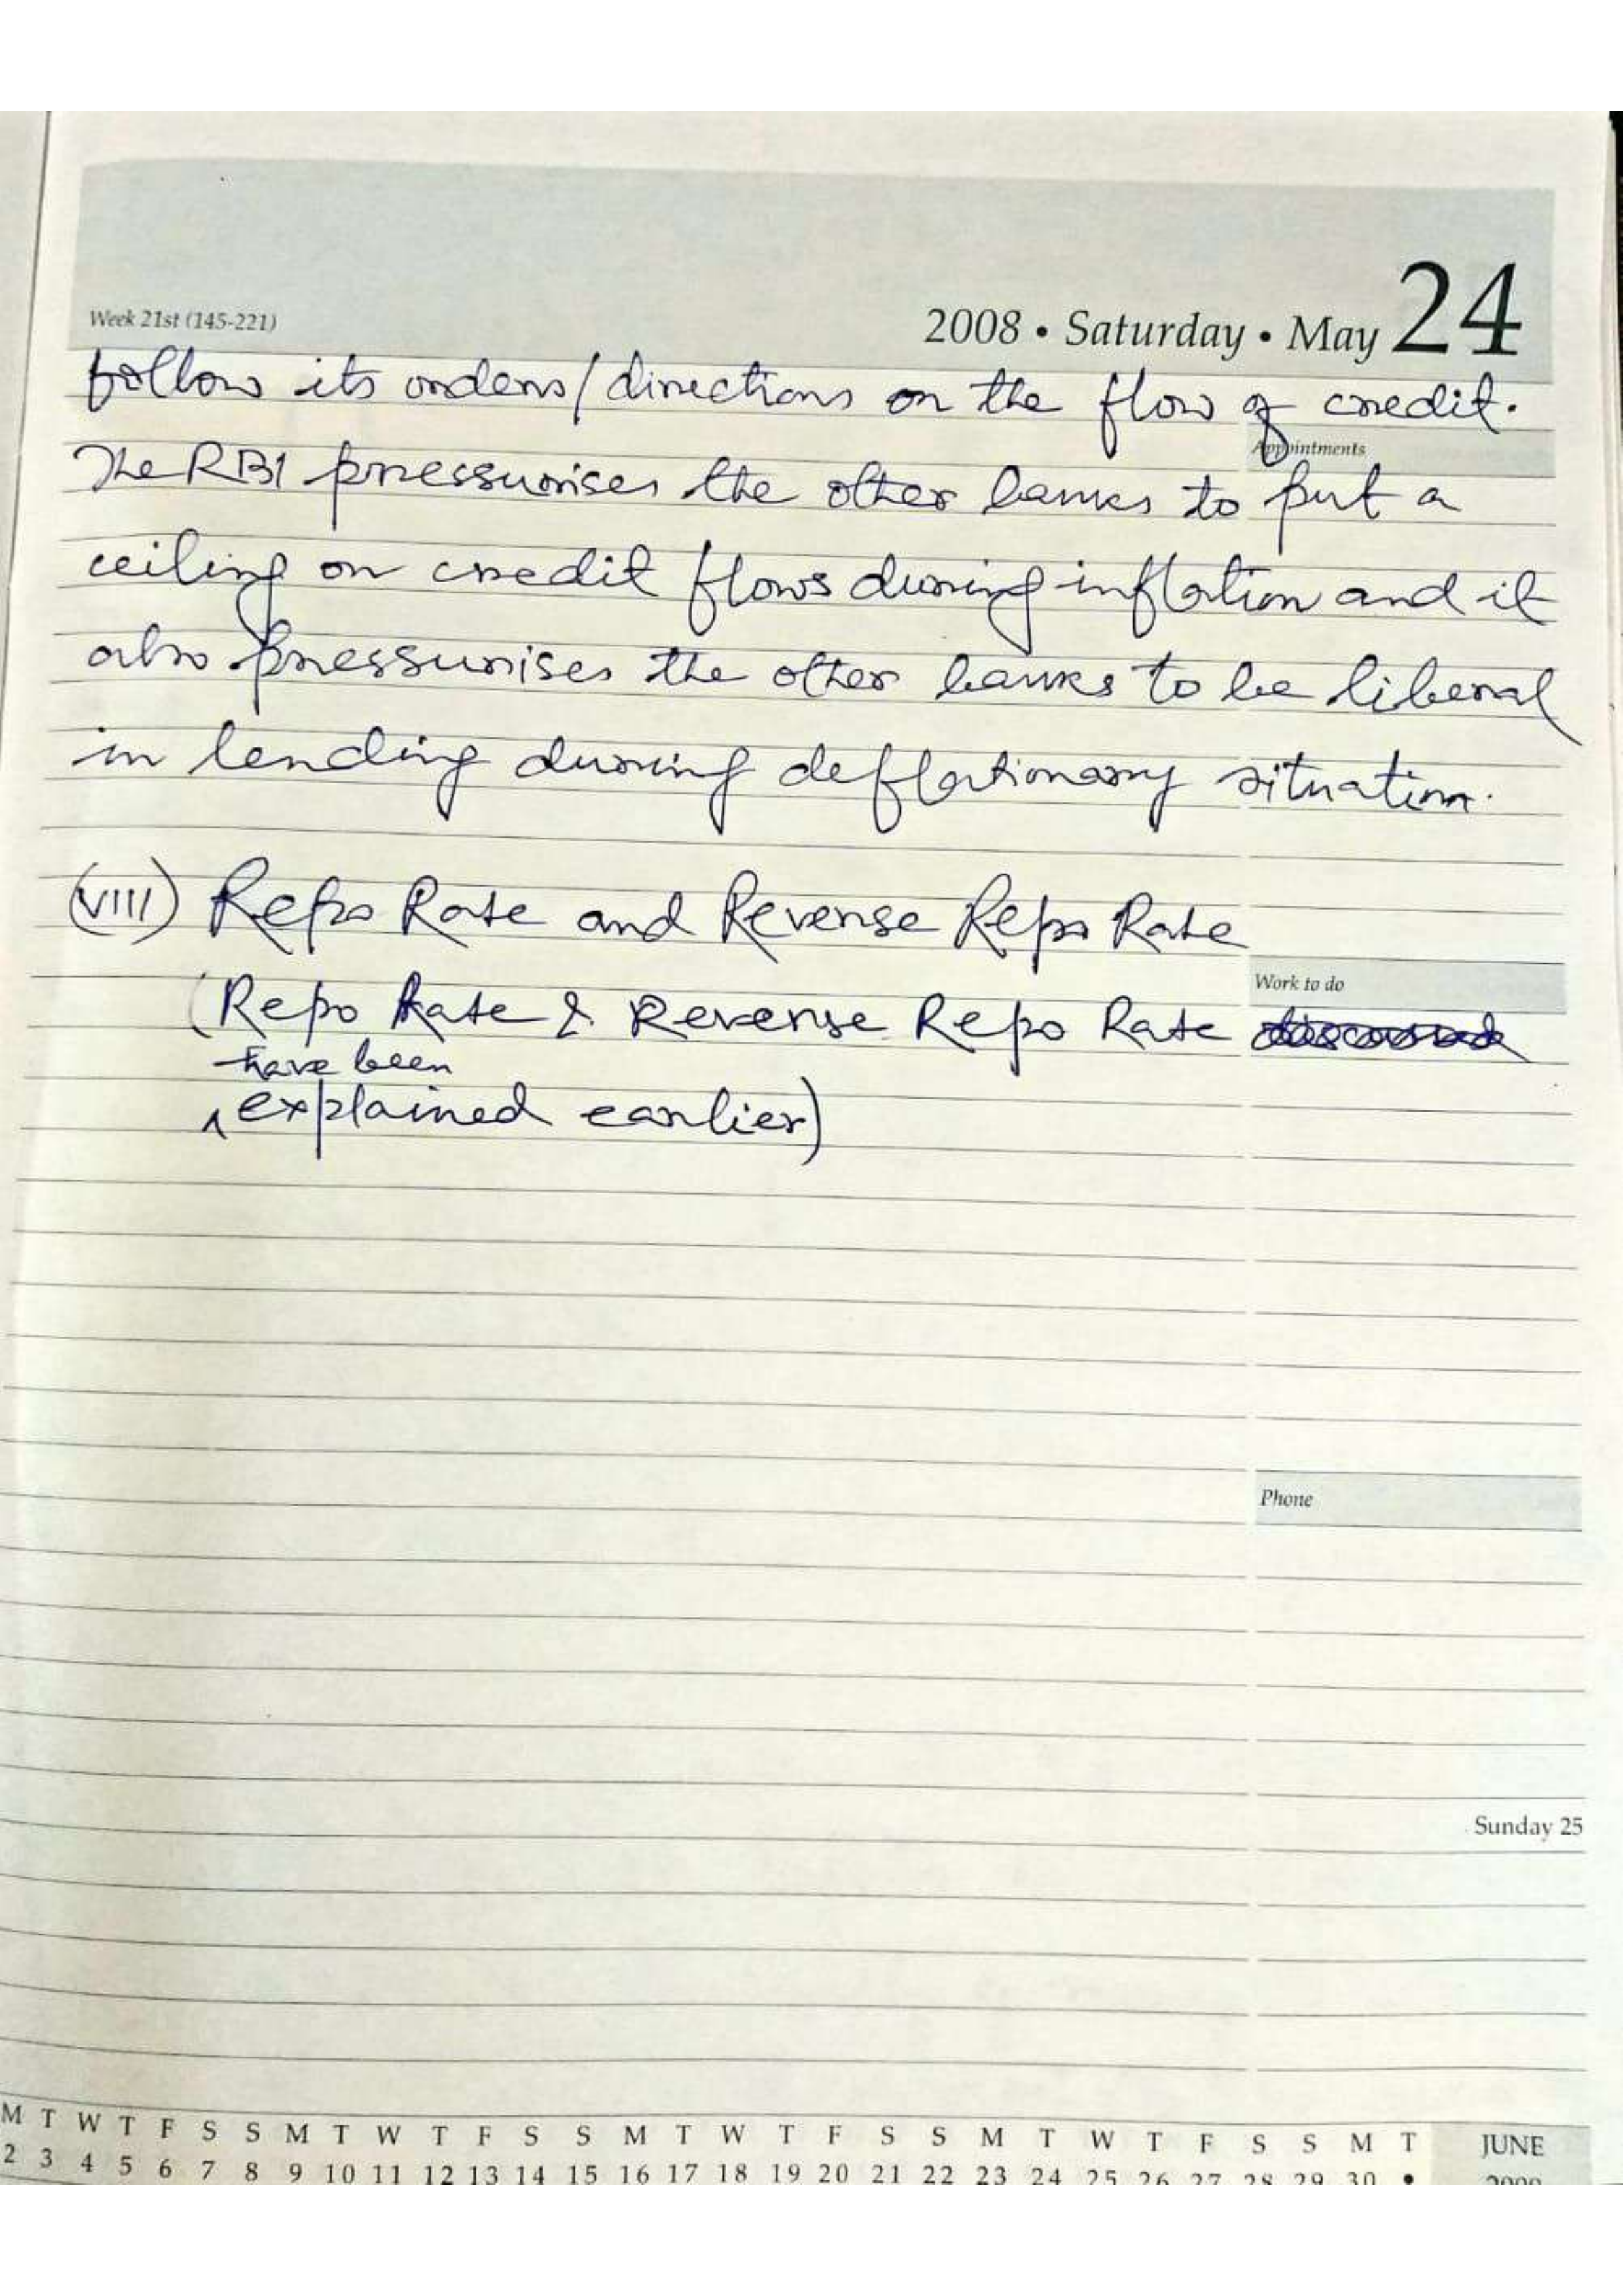 Week 21st (145-221)
2008 • Saturday • May 24
follow its orders/directions on the flow of credit.
Appointments
The RBI pressurises the other banks to put a
ceiling on credit flows during inflation and it
also pressurises the other banks to be liberal
in lending during deflationary situation.
(VIII) Repo Rate and Reverse Repo Rate
Work to do
(Repo Rate & Reverse Repo Rate
have been
explained earlier)
Phone
Sunday 25
M T W T F S S M T W T F S S M T W T F S S M T W T F S S M T JUNE
2 3 4 5 6 7 8 9 10 11 12 13 14 15 16 17 18 19 20 21 22 23 24 25 26 27 28 29 30 •